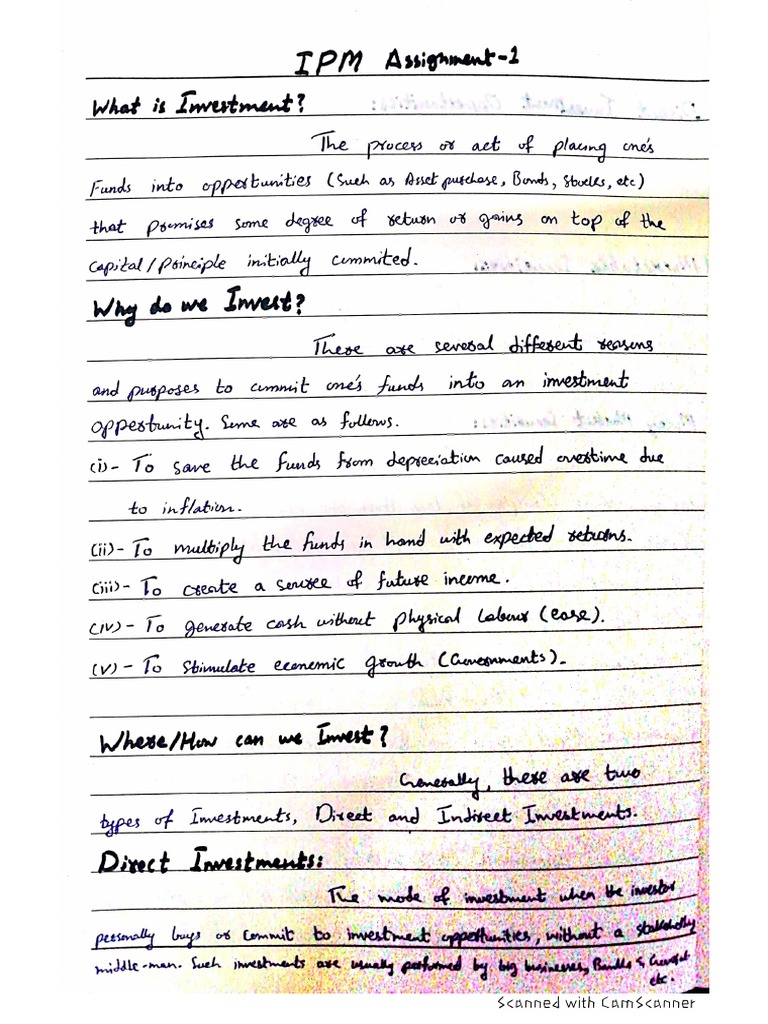 IPM Assignment-1
What is Investment?
The process or act of placing one's
Funds into opportunities (Such as Asset purchase, Bonds, Stocks, etc)
that promises some degree of return or gains on top of the
Capital/Principle initially commited.
Why do we Invest?
There are several different reasons
and purposes to commit one's funds into an investment
opportunity. Some are as follows.
(i)- To save the funds from depreciation caused overtime due
to inflation.
(ii)- To multiply the funds in hand with expected returns.
(iii)- To create a source of future income.
(iv)- To generate cash without physical Labour (ease).
(v)- To stimulate economic growth (Governments).
Where/How can we Invest?
Generally, there are two
types of Investments, Direct and Indirect Investments.
Direct Investments:
The mode of investment when the investor
personally buys or commit to investment opportunities, without a
middle-man. Such investments are usually performed by big businesses, Banks &
etc.
Scanned with CamScanner